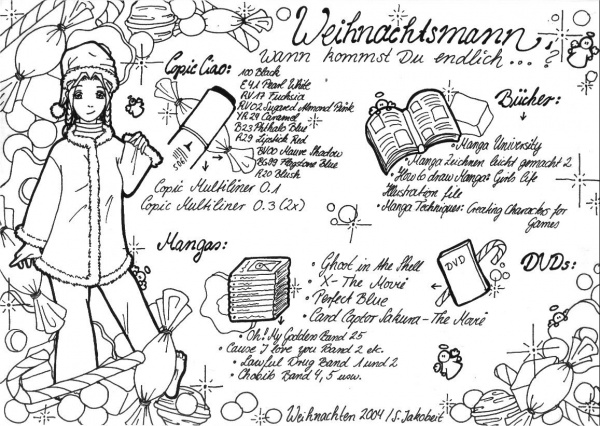 Weihnachtsmann,
Wann kommst Du endlich...?
Copic Ciao:
100 Black
E41 Pearl White
RV17 Fuchsia
RV02 Sugared Almond Pink
YR24 Caramel
B23 Phthalo Blue
R29 Lipstick Red
BV00 Mauve Shadow
BG99 Flagstone Blue
R20 Blush
Copic Multiliner 0.1
Copic Multiliner 0.3 (2x)
Bücher:
• Manga University
• Manga Zeichnen leicht gemacht 2
• How to draw Manga: Girls Life
Illustration file
• Manga Techniques: Creating Characters for
Games
Mangas:
• Oh! My Goddess Band 25
• Cause I love you Band 2 etc.
• Lawful Drug Band 1 und 2
• Chobits Band 4, 5 usw.
DVD
DVDs:
• Ghost in the Shell
• X - The Movie
• Perfect Blue
• Card Captor Sakura - The Movie
Weihnachten 2004 / S. Jakobeit